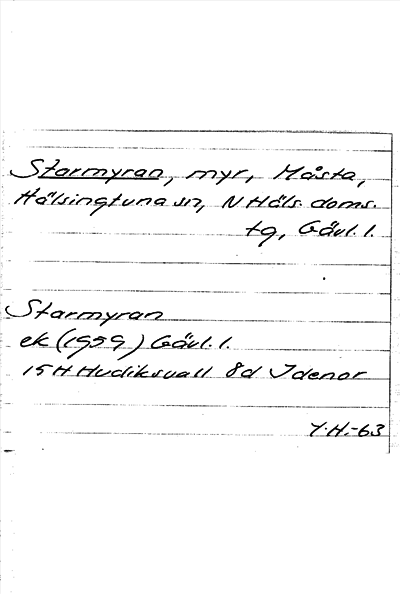 Starmyran, myr, Måsta,
Hälsingtuna sn, N Häls. doms.
tg, Gävl. l.
Starmyran
ek (1959) Gävl. l.
15H Hudiksvall 8d Idenor
Y.H.-63